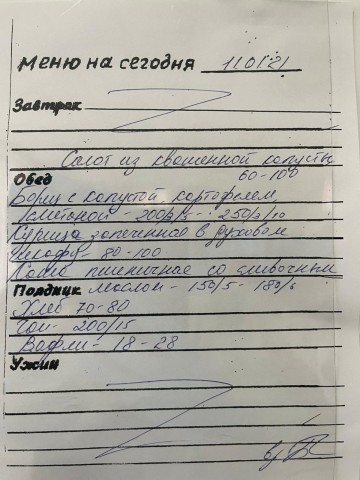 Меню на сегодня 11.01.21
Завтрак
Салат из квашенной капусты
60-100
Обед
Борщ с капустой, картофелем,
сметаной - 200/2/5 - 250/2/10
Курица запеченная в духовом
шкафу - 80-100
Каша пшеничная со сливочным
Полдник маслом - 150/5 - 180/6
Хлеб 70-80
Чай - 200/15
Вафли - 18-28
Ужин